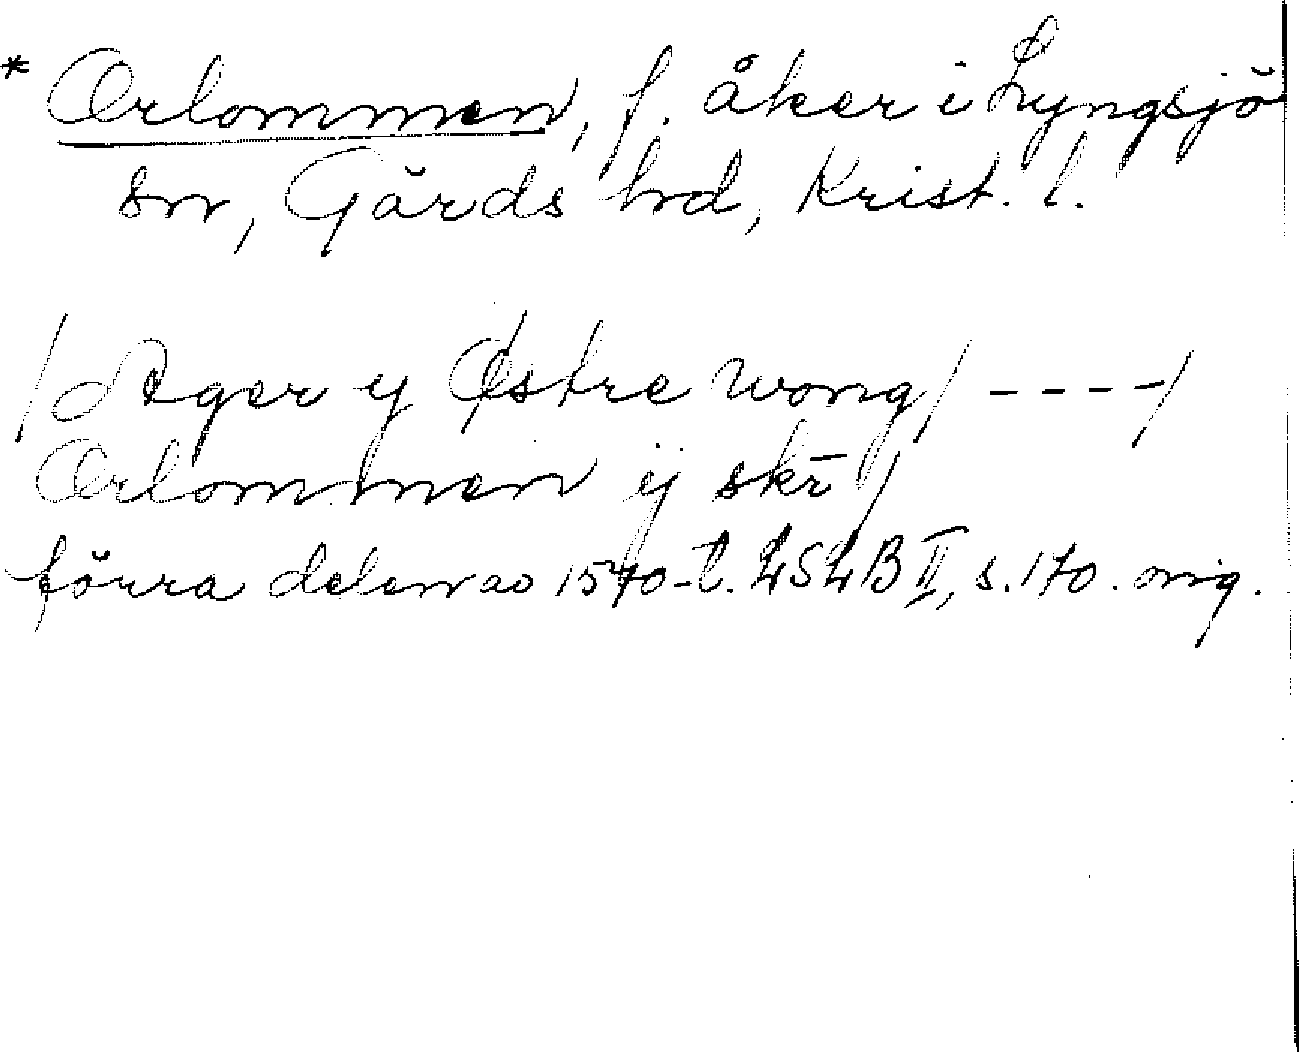 * Orlommen, f. åker i Lyngsjö
sn, Gärds hd, Krist. l.
/Ager y Østre wong/ ----/
Orlommen ij skr̄ /
förra delen av 1570-t. LSLB II, s. 170. orig.